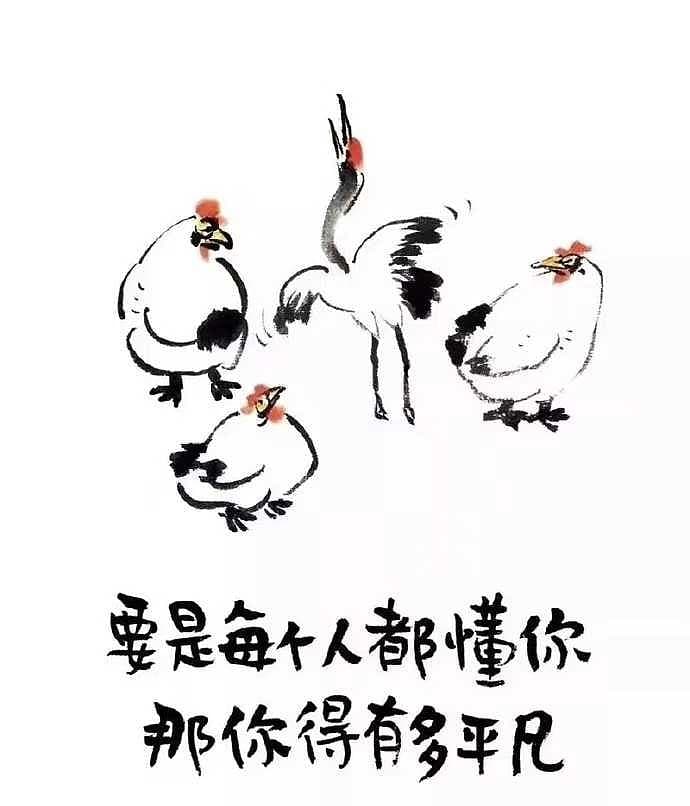 要是每个人都懂你
那你得有多平凡